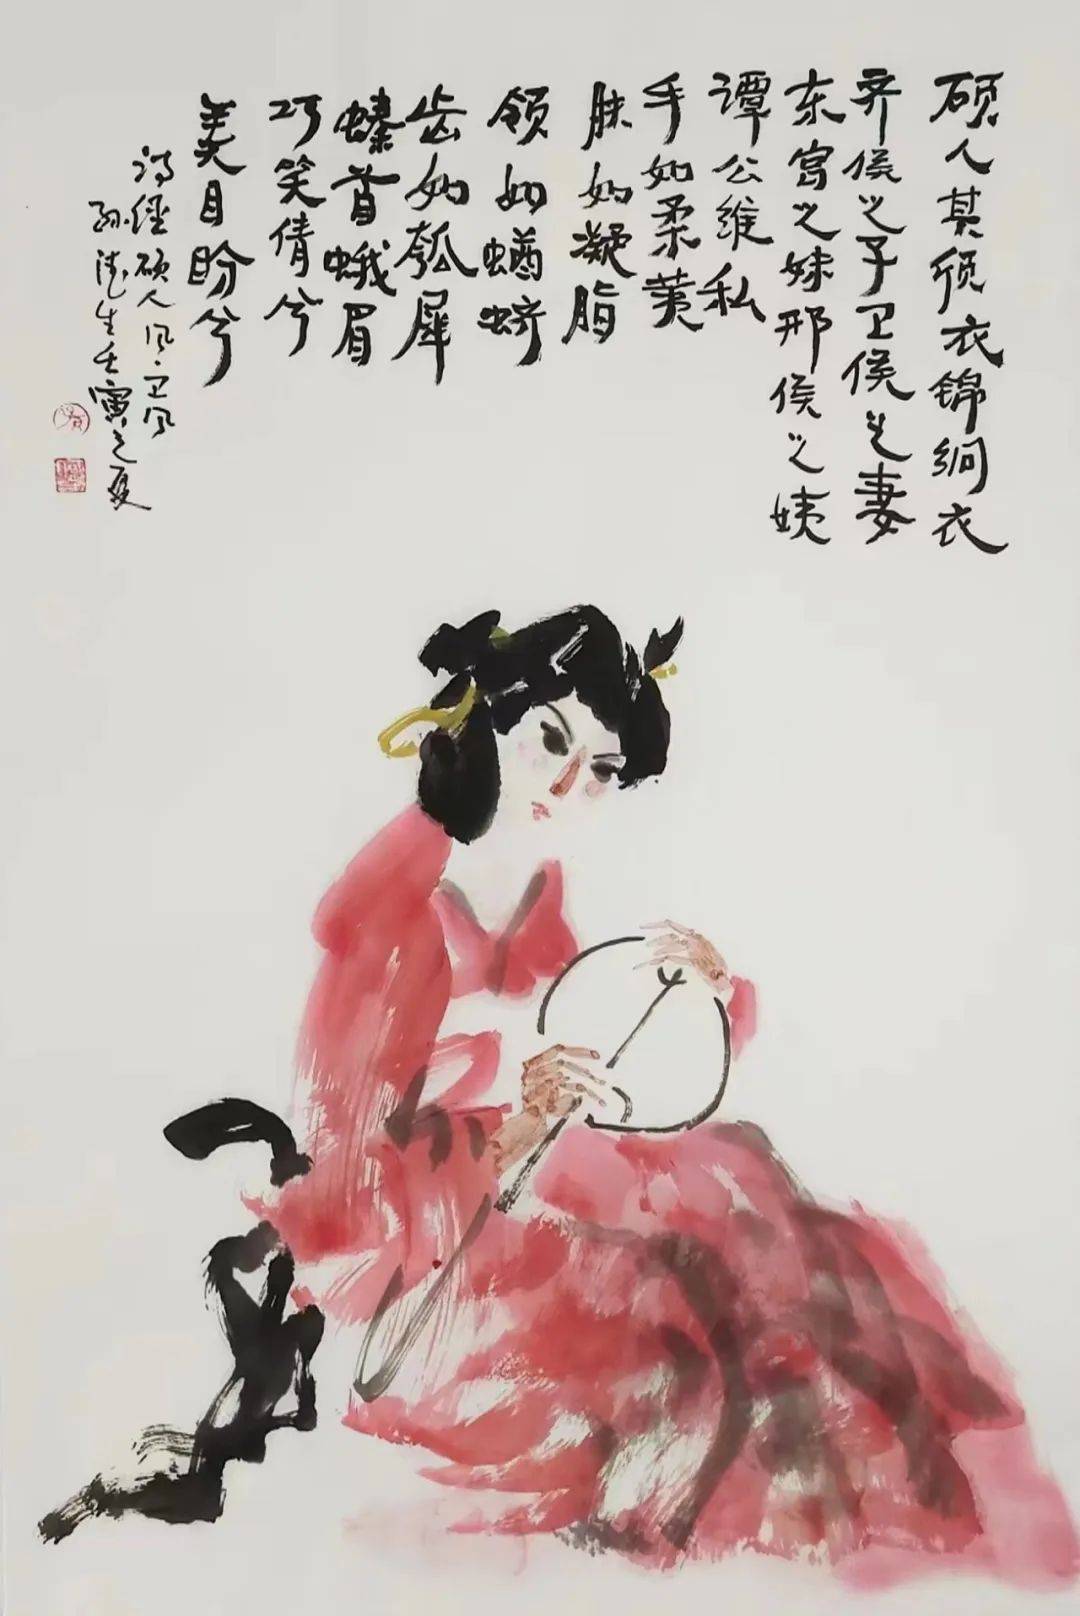 硕人其颀衣锦䌹衣
齐侯之子卫侯之妻
东宫之妹邢侯之姨
谭公维私
手如柔荑
肤如凝脂
领如蝤蛴
齿如瓠犀
螓首蛾眉
巧笑倩兮
美目盼兮
诗经硕人风·卫风
孙生壬寅之夏